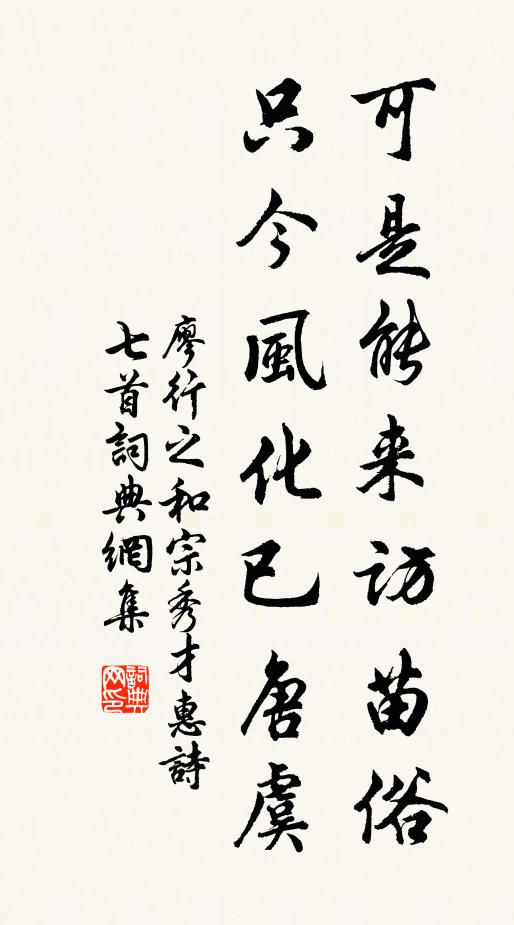 可是能来访苗俗
只今風化已唐虞
廖行之和宗秀才惠詩
七首詞典網集
詞典
网印